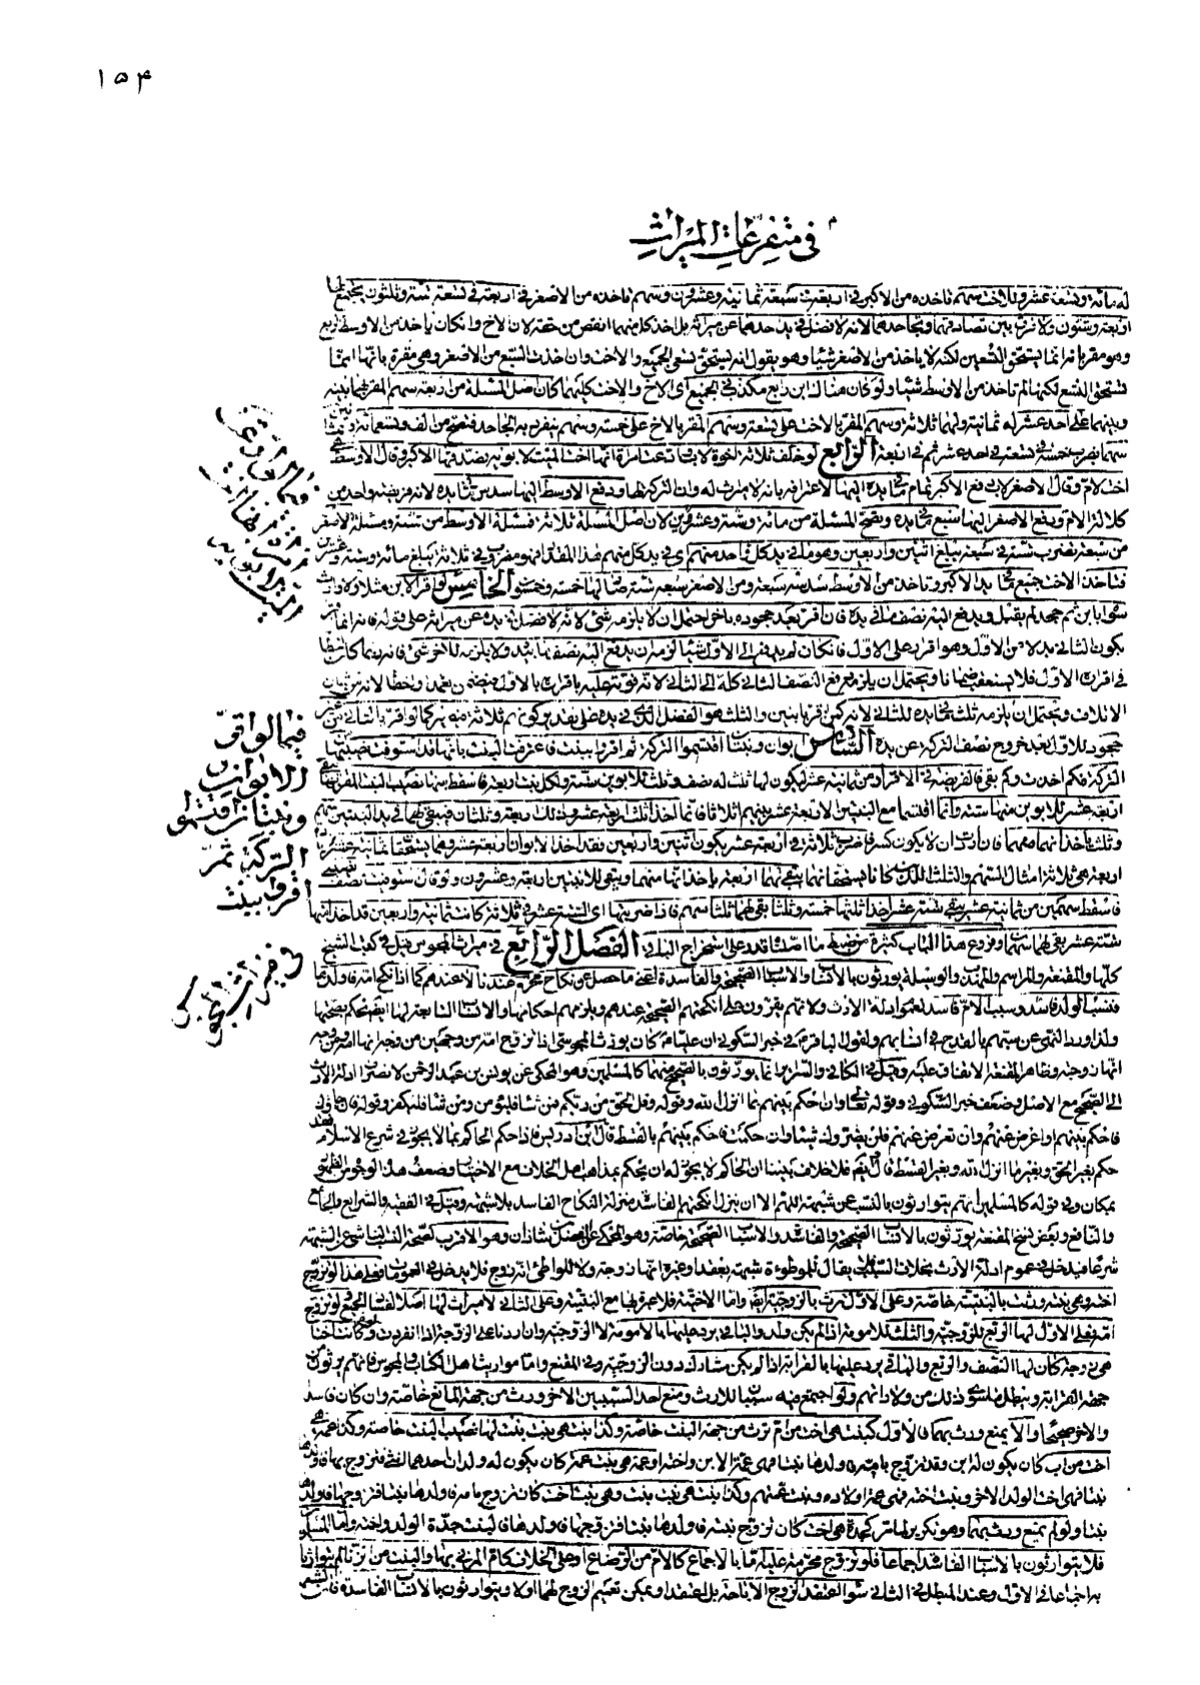 ١٥۴
في متفرعات الميراث
له مائة وتسعة عشر وللاخت سهم تأخذه من الاكبر في اربعة في سبعة ثمانية وعشرون وسهم تأخذه من الاصغر في اربعة في تسعة ستة وثلثون يجتمع لها
اربعة وستون ولا فرق بين تصادقهما وتجاحدهما لانه لا فضل في يد احدهما عن ميراثه بل اخذ كل منهما انقص من حقه لان الاخ وان كان ياخذ من الاوسط
وهو مقر بانه انما يستحق التسعين لكنه لا ياخذ من الاصغر شيئا وهو يقول انه يستحق تسعي الجميع والاخت وان اخذت السبع من الاصغر وهي مقرة بانها انما
تستحق التسع لكنها لم تاخذ من الاوسط شيئا ولو كان هناك ابن رابع مكذب في الجميع اي الاخ والاخت كليهما كان اصل المسئلة من اربعة سهم المقر بهما بينه
وبينهما على احد عشر له ثمانية ولهما ثلاثة وسهم المقر بالاخت على تسعة وسهم المقر بالاخ على خمسة وسهم ينفرد به الجاحد فتصح من الف وتسعمائة وثمانين
سهما يضرب خمسة في تسعة في احد عشر ثم في اربعة الرابع لو خلف ثلاثة اخوة لاب فادعت امرأة انها اخت الميت لابويه فصدقها الاكبر وقال الاوسط هي
اخت لام وقال الاصغر لاب دفع الاكبر تمام ما في يده اليها لاعترافه بانه لا ميراث له وان التركة لها ودفع الاوسط اليها سدس ما في يده لانه فريضة واحد من
كلالة الام ودفع الاصغر اليها سبع ما في يده وتصح المسئلة من مائة وستة وعشرين لان اصل المسئلة ثلاثة فمسئلة الاوسط من ستة ومسئلة الاصغر
من سبعة تضرب ستة في سبعة تبلغ اثنين واربعين وهو ما في يد كل واحد منهم اي في يد كل منهم هذا المقدار مضروب في ثلاثة تبلغ مائة وستة وعشرين
فتاخذ الاخت جميع ما في يد الاكبر وتاخذ من الاوسط سدسه سبعة ومن الاصغر سبعه ستة صار لها خمسة وخمسون الخامس لو اقر الابن مثلا ولا وارث
سواه بابن ثم جحد لم يقبل ويدفع اليه نصف ما في يده فان اقر بعد جحوده باخر احتمل ان لا يلزمه شئ لانه لا فضل في يده عن ميراثه على قوله فانه انما
يكون الثاني بدلا من الاول وهو اقر به على الاول فان كان لم يدفع الى الاول شيئا لزمه ان يدفع اليه نصف ما بيده ولا يلزمه للاخر شئ
في اقرار الاول فلا يستعقب ضمانا ويحتمل ان يلزمه دفع النصف الثاني كله الى الثاني لانه فوته عليه باقراره بالاول فيضمن تعمد او خطأ لانه من باب
الاتلاف ويحتمل ان يلزمه ثلث ما في يده للثاني لانه كمن اقر باثنين والثلث هو الفضل الذي في يده على تقدير كونهم ثلاثة فيصير كما لو اقر بالثاني من غير
جحود للاول بعد خروج نصف التركة عن يده السادس ابوان وبنتان اقتسموا التركة ثم اقروا ببنت فاعترفت البنت بانها قد استوفت نصيبها من
التركة فكم اخذت وكم بقي فالفريضة في الاقرار من ثمانية عشر ليكون لها ثلث له نصف وثلث للابوين ستة ولكل بنت اربعة فاسقط منها نصيب البنت المقر بها يبقى
اربعة عشر للابوين منها ستة وانما اقتسما مع البنتين الاربعة عشر بينهم اثلاثا فاخذا ثلث اربعة عشر وذلك اربعة وثلثان فيبقى لهما في يد البنتين سهم
وثلث ياخذانهما منهما فان اردت ان لا يكون كسر فاضرب ثلاثة في اربعة عشر يكون اثنين واربعين فقد اخذ الابوان اربعة عشر وهما يستحقان ثمانية عشر يبقى
اربعة هي ثلاثة امثال السهم والثلث اللذين كانا يستحقانهما يبقى لهما اربعة ياخذانها منهما ويبقى للابنتين اربعة وعشرون ولو قال استوفيت نصف نصيبي
فاسقط سهمين من ثمانية عشر يبقى ستة عشر اخذا ثلثها خمسة وثلثا بقي لهما ثلثا سهم فاذا ضربتها اي الستة عشر في ثلاثة كانت ثمانية واربعين قد اخذا منها
ستة عشر بقي لهما سهمان وفروع هذا الباب كثيرة من ضبط ما اصلناه قدر على استخراج الباقي الفصل الرابع في ميراث المجوس قيل في كتب الشيخ
كلها والمقنعة والمراسم والمهذب والوسيلة يورثون بالانساب والاسباب الصحيحة والفاسدة اعني ما حصل عن نكاح محرم عندنا لا عندهم كما اذا نكح امه فاولدها
فنسب الولد فاسد وسبب الام فاسد لعموم ادلة الارث ولانهم يقرون على انكحتهم الصحيحة عندهم ويلزمهم احكامها والانساب التابعة لها ايضا بحكم بصحتها
ولذا ورد النهي عن سبهم بالقدح في انسابهم ولقول الباقر ع في خبر السكوني ان عليا ع كان يورث المجوسي اذا تزوج امه من وجهين من وجه انها امه ومن وجه
انها زوجته وظاهر المقنعة الاتفاق عليه وقيل في الكافي والسرائر انما يورثون بالصحيح منهما كالمسلمين وهو المحكي عن يونس بن عبد الرحمن لانصراف ادلة الارث
الى الصحيح مع الاصل وضعف خبر السكوني وقوله تعالى وان احكم بينهم بما انزل الله وقوله وقل الحق من ربكم فمن شاء فليؤمن ومن شاء فليكفر وقوله فان جاؤك
فاحكم بينهم او اعرض عنهم وان تعرض عنهم فلن يضروك شيئا وان حكمت فاحكم بينهم بالقسط قال ابن ادريس فاذا حكم الحاكم بما لا يجوز في شرع الاسلام فقد
حكم بغير الحق وبغير ما انزل الله وبغير القسط قال وايضا فلا خلاف بيننا ان الحاكم لا يجوز له ان يحكم بمذاهب اهل الخلاف مع الاختيار وضعف هذه الوجوه من الظهور
بمكان وفي قوله كالمسلمين انهم يتوارثون بالنسب عن شبهة اللهم الا ان ينزل انكحتهم الفاسدة منزلة النكاح الفاسد بلا شبهة وقيل في الفقيه والشرايع والجامع
والنافع وبعض نسخ المقنعة يورثون بالانساب الصحيحة والفاسدة والاسباب الصحيحة خاصة وهو المحكي عن الفضل بن شاذان وهو الاقرب لصحة النسب الناشي عن الشبهة
شرعا فيدخل في عموم ادلة الارث بخلاف السبب فلا يقال لموطوءة شبهة بعقد او غيره انها زوجة ولا للواطئ انه زوج فلا يدخل في العمومات فعلى هذا لو تزوج
اخته وهي بنته ورثت بالبنتية خاصة وعلى الاول ترث بالزوجية ايضا واما الاختية فلا عبرة بها مع البنتية وعلى الثاني لا ميراث لها اصلا لفساد الجميع ولو تزوج
امه فعلى الاول لها الربع للزوجية والثلث للامومة اذا لم يكن ولد والباقي يرد عليها بالامومة لا الزوجية وان رددنا على الزوجة اذا انفردت ولو كانت اختا
هي زوجة كان لها النصف والربع والباقي يرد عليها بالقرابة اذا لم يكن مشارك دون الزوجية وفي المقنع واما مواريث اهل الكتاب والمجوس فانهم يرثون من
جهة القرابة ويبطل ما سوى ذلك من ولاداتهم ولو اجتمع فيه سببان للارث ومنع احد السببين الاخر ورث من جهة المانع خاصة وان كان فاسدا
والاخر صحيحا والا يمنع ورث بهما فالاول كبنت هي اخت من ام ترث من جهة البنت خاصة وكذا بنت هي بنت بنت لها نصيب البنت خاصة وكذا عمة هي
اخت من اب كان يكون له ابن وقد تزوج بامه فاولدها بنتا فهي عمة الابن واخته او عمة هي بنت عمة كان يكون له ولدان احدهما انثى فتزوج بها فاولدها
بنتا فهي اخت الولد الاخر وبنت اخته فهي عمة اولاده وبنت عمتهم وكذا بنت هي بنت بنت وهي بنت اخت كان تزوج بامه فاولدها بنتا فتزوجها فاولدها
بنتا ولو لم يمنع ورث بهما وهو نكير كجدة هي اخت كان تزوج بنته فاولدها بنتا فتزوجها فاولدها فالبنت جدة الولد واخته واما المسلمون
فلا يتوارثون بالاسباب الفاسدة اجماعا فلو تزوج محرمة عليه اما بالاجماع كالام من الرضاع او على الخلاف كام المزني بها والبنت من الزنا لم يتوارثا
به اجماعا في الاول وعند المبطل في الثاني سواء اعتقد الزوج الاباحة بل اعتقد او يمكن تعميم الزوج لهما او لا ويتوارثون بالانساب الفاسدة فان الشبهة
فيما لو اقر
الابوان
وبنتا اقتسموا
التركة ثم
اقروا ببنت
في ميراث المجوس